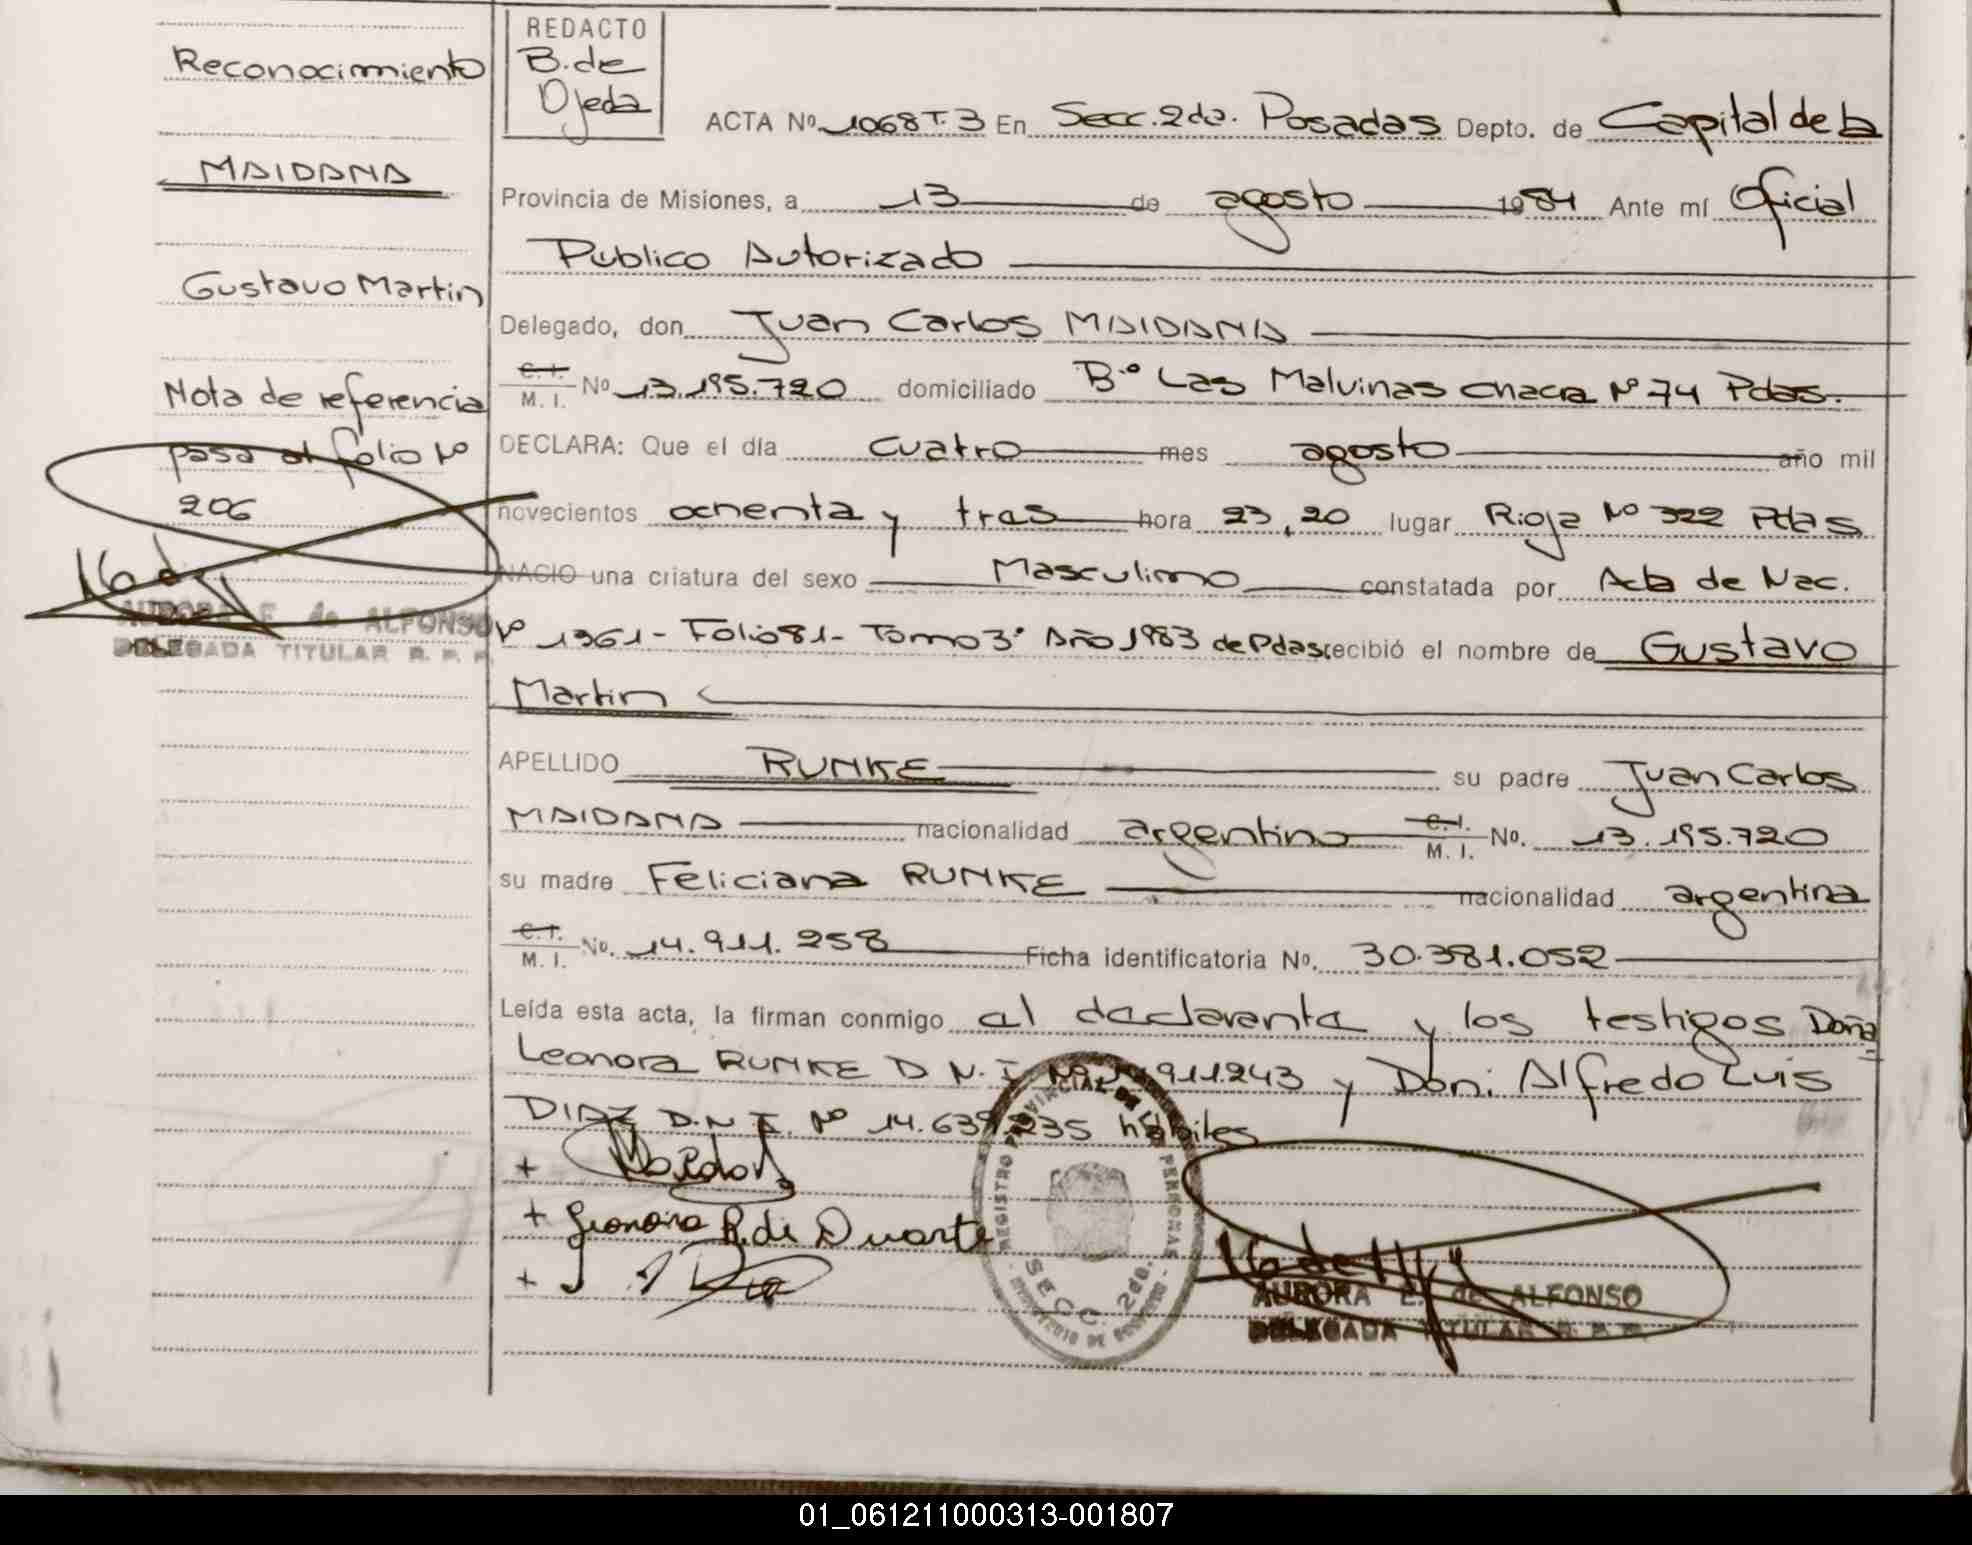 Reconocimiento
MAIDANA
Gustavo Martin
Nota de referencia
pasa al folio Nº
206
AURORA E. de ALFONSO
DELEGADA TITULAR R. P. P.
REDACTO
B. de
Ojeda
ACTA Nº 1068 T. 3 En Secc. 2da. Posadas Depto. de Capital de la
Provincia de Misiones, a 13 de agosto 1984 Ante mí Oficial
Publico Autorizado
Delegado, don Juan Carlos MAIDANA
C. I. / M. I. Nº 13.195.720 domiciliado Bº Las Malvinas Chacra Nº 74 Pdas.
DECLARA: Que el día cuatro mes agosto año mil
novecientos ochenta y tres hora 23,20 lugar Rioja Nº 322 Pdas
NACIO una criatura del sexo Masculino constatada por Acta de Nac.
Nº 1961 - Folio 81 - Tomo 3º Año 1983 de Pdas recibió el nombre de Gustavo
Martin
APELLIDO RUNKE su padre Juan Carlos
MAIDANA nacionalidad argentino C. I. / M. I. No. 13.195.720
su madre Feliciana RUNKE nacionalidad argentina
C. I. / M. I. No. 14.911.258 Ficha identificatoria No. 30.381.052
Leída esta acta, la firman conmigo el declarante y los testigos Doña
Leonora RUNKE D.N.I. Nº 14.911.243 y Don: Alfredo Luis
DIAZ D.N.I. Nº 14.639.235 hábiles
+
+ Leonora R. de Duarte
+
REGISTRO PROVINCIAL DE LAS PERSONAS
SECC. 2da.
MINISTERIO DE GOBIERNO
AURORA E. de ALFONSO
DELEGADA TITULAR R. P. P.
01_061211000313-001807